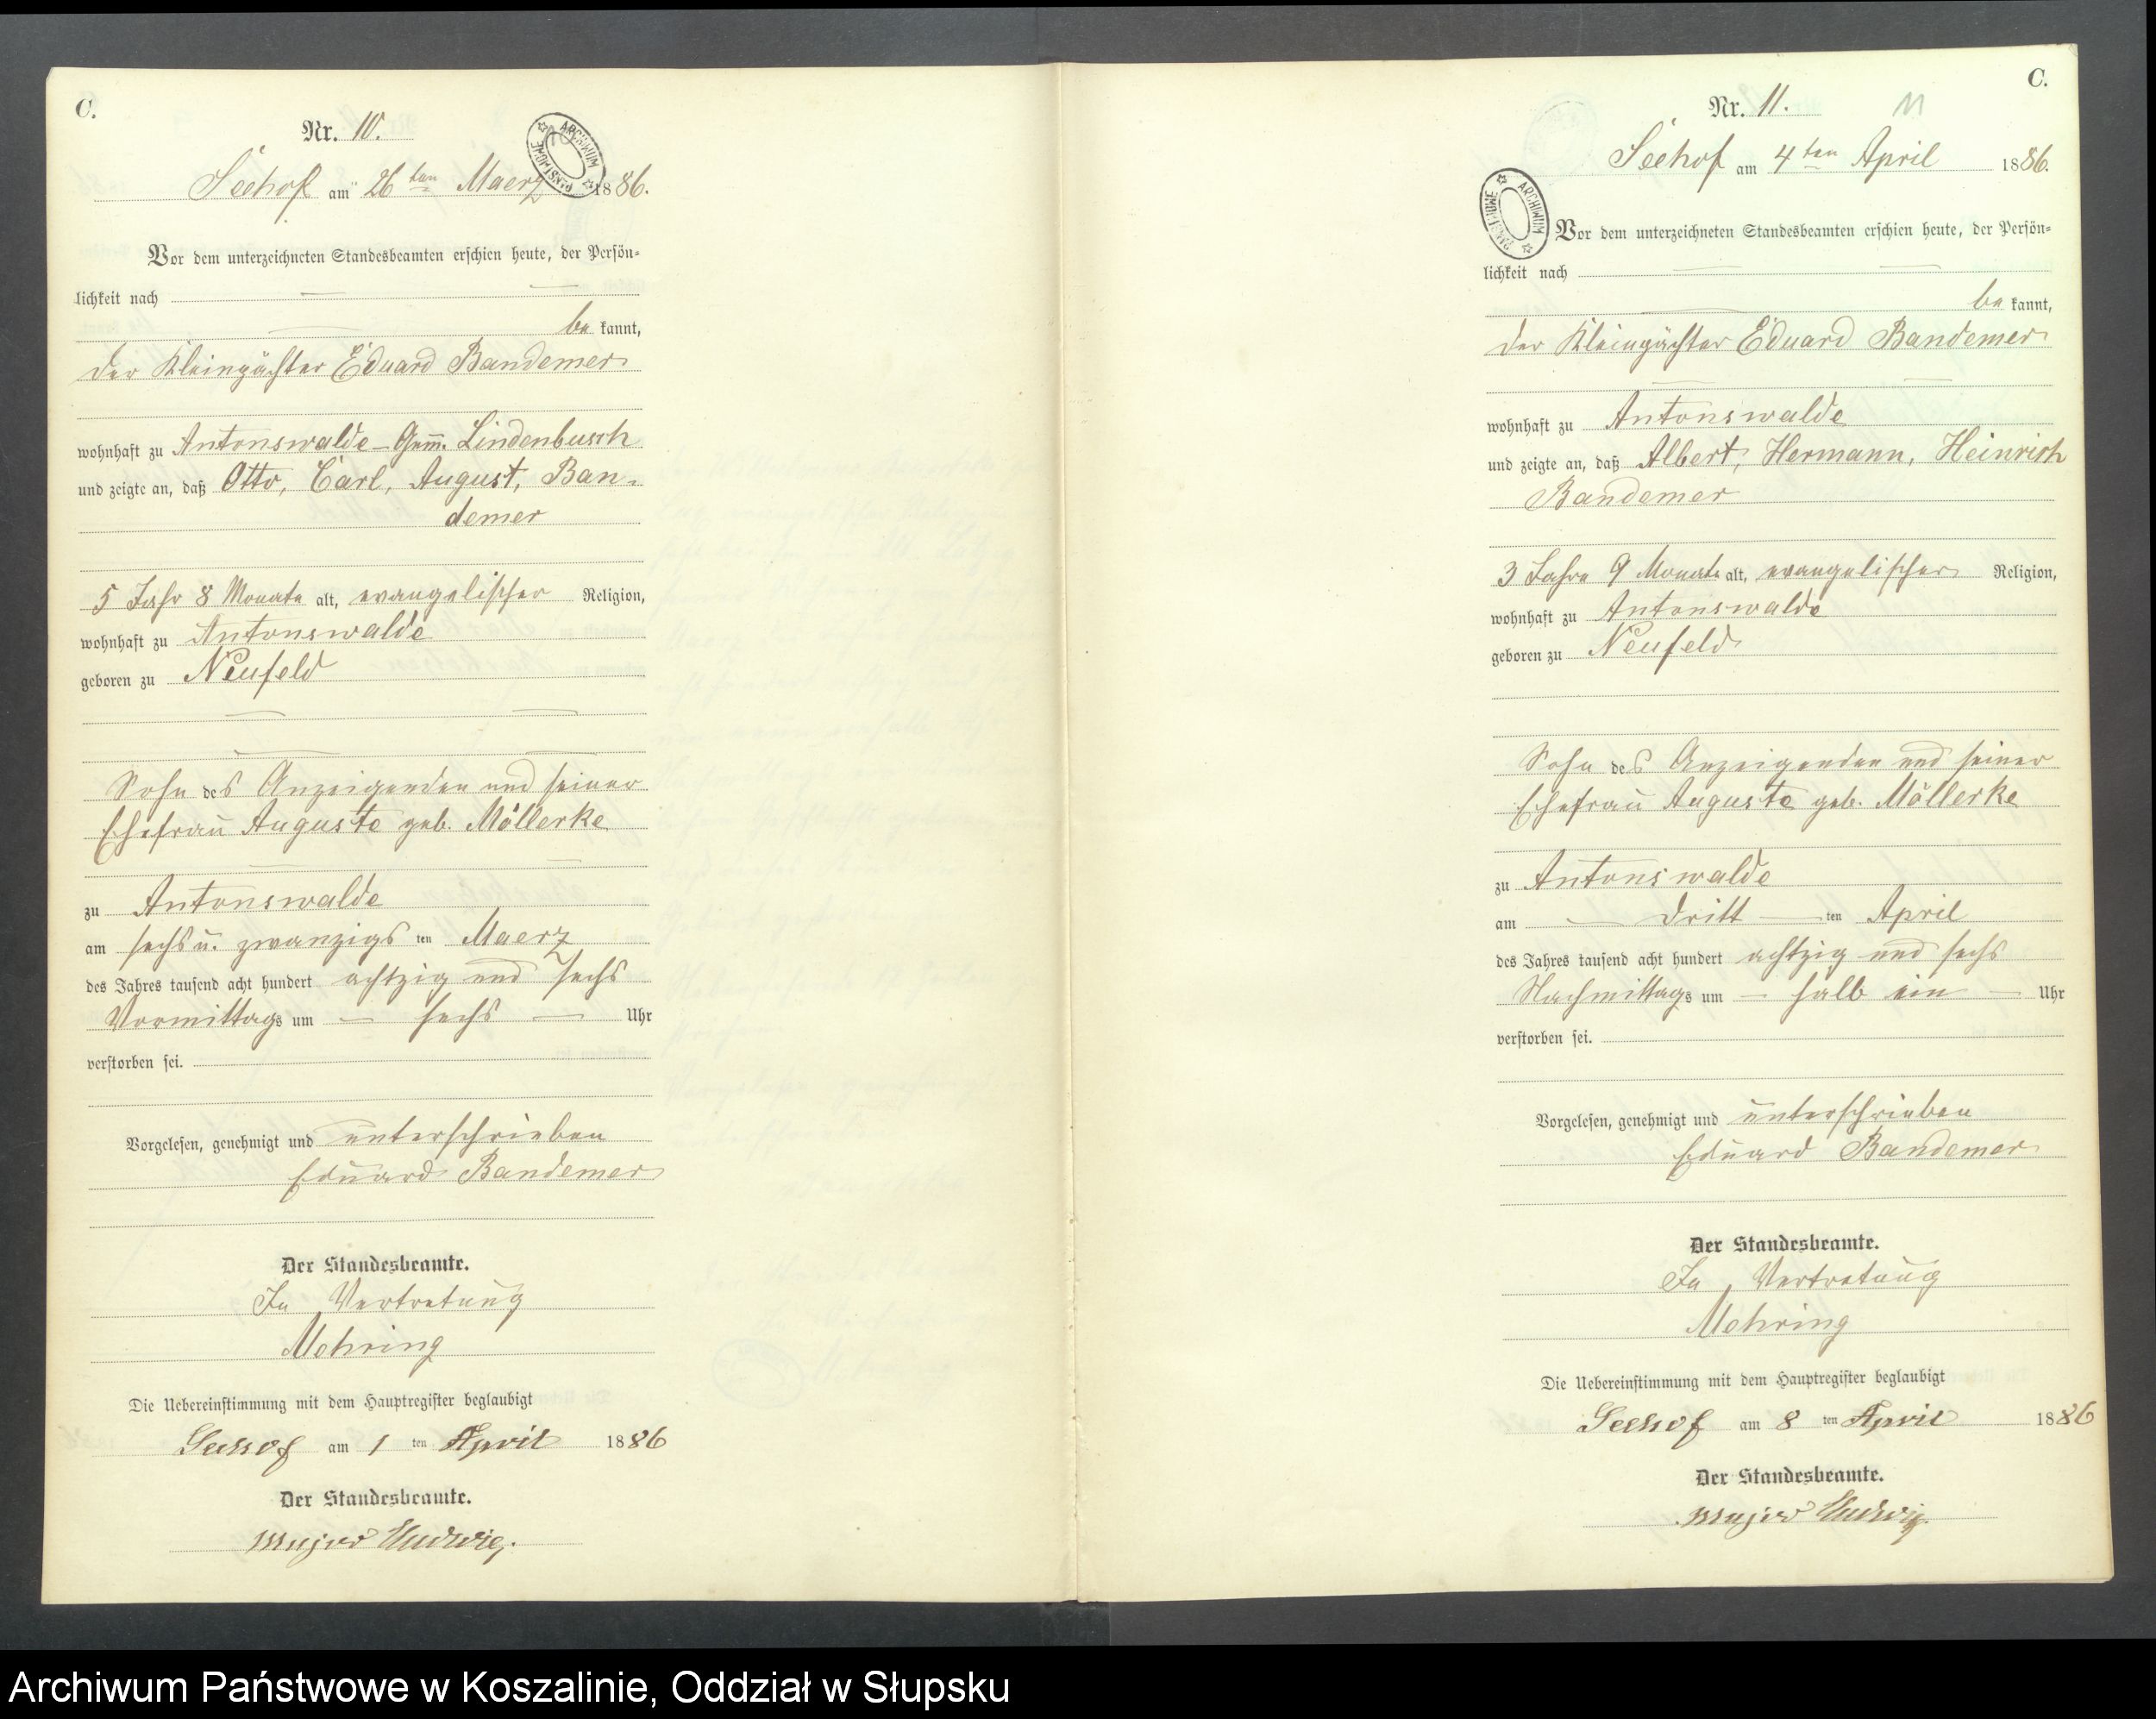 C.
Nr. 10.
ARCHIWUM PAŃSTWOWE
Seehof am 26ten Maerz 1886.
Vor dem unterzeichneten Standesbeamten erschien heute, der Persön-
lichkeit nach
be kannt,
der Kleinpächter Eduard Bandemer
wohnhaft zu Antonswalde - Gem. Lindenbusch
und zeigte an, daß Otto, Carl, August, Ban-
demer
5 Jahr 8 Monate alt, evangelischer Religion,
wohnhaft zu Antonswalde
geboren zu Neufeld
Sohn des Anzeigenden und seiner
Ehefrau Auguste geb. Möllerke
zu Antonswalde
am sechs u. zwanzigs ten Maerz
des Jahres tausend acht hundert achtzig und sechs
Vormittags um sechs Uhr
verstorben sei.
Vorgelesen, genehmigt und unterschrieben
Eduard Bandemer
Der Standesbeamte.
In Vertretung
Mehring
Die Uebereinstimmung mit dem Hauptregister beglaubigt
Seehof am 1 ten April 1886
Der Standesbeamte.
Major Ludwig.
C.
Nr. 11.
11
Seehof am 4ten April 1886.
ARCHIWUM PAŃSTWOWE
Vor dem unterzeichneten Standesbeamten erschien heute, der Persön-
lichkeit nach
be kannt,
der Kleinpächter Eduard Bandemer
wohnhaft zu Antonswalde
und zeigte an, daß Albert, Hermann, Heinrich
Bandemer
3 Jahre 9 Monate alt, evangelischer Religion,
wohnhaft zu Antonswalde
geboren zu Neufeld
Sohn des Anzeigenden und seiner
Ehefrau Auguste geb. Möllerke
zu Antonswalde
am dritt ten April
des Jahres tausend acht hundert achtzig und sechs
Nachmittags um halb ein Uhr
verstorben sei.
Vorgelesen, genehmigt und unterschrieben
Eduard Bandemer
Der Standesbeamte.
In Vertretung
Mehring
Die Uebereinstimmung mit dem Hauptregister beglaubigt
Seehof am 8 ten April 1886
Der Standesbeamte.
Major Ludwig.
Archiwum Państwowe w Koszalinie, Oddział w Słupsku